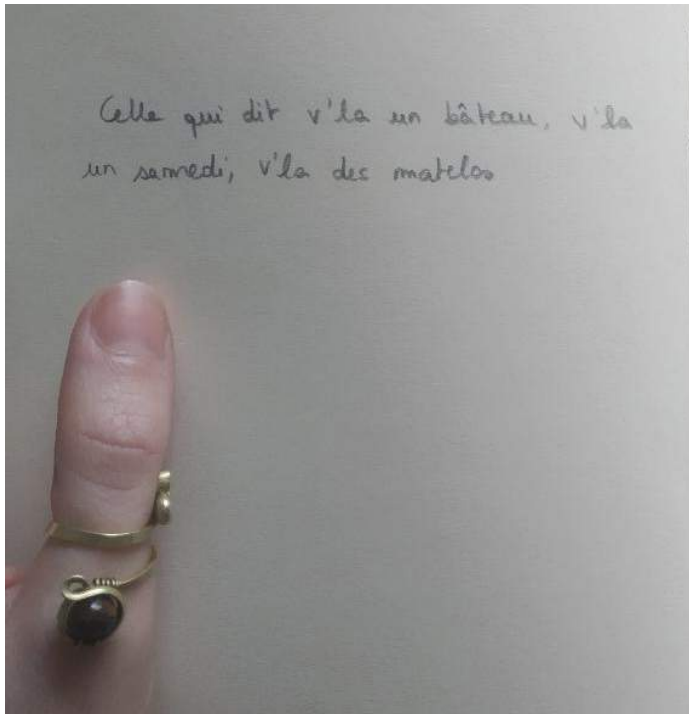 Celle qui dit v'la un bâteau, v'la
un samedi, v'la des matelos